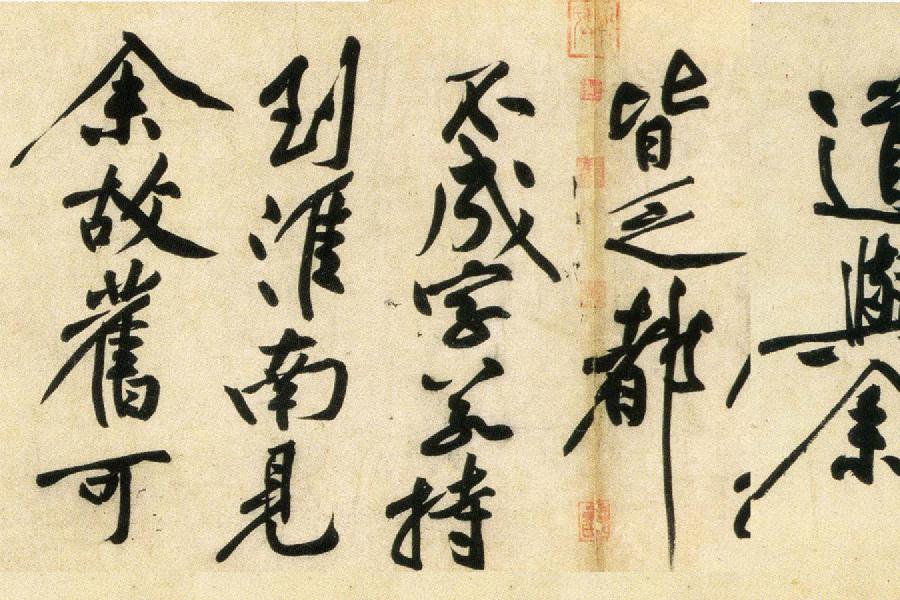 道與余
皆乏都
不成字若持
到淮南見
余故舊可